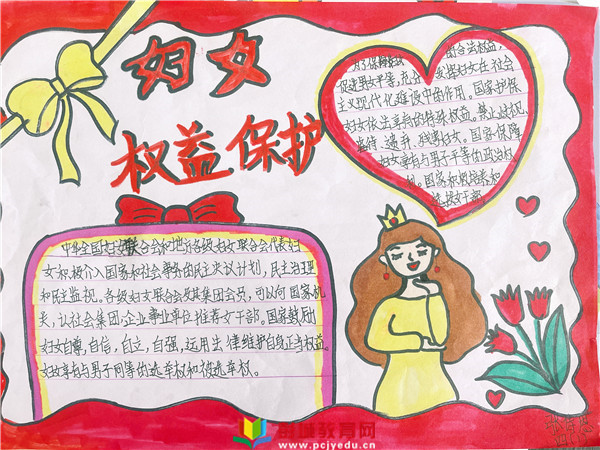 妇女
权益保护
为了保障妇女的合法权益,
促进男女平等,充分发挥妇女在社会
主义现代化建设中的作用。国家护保
妇女依法享有的特殊权益。禁止歧视、
虐待、遗弃、残害妇女。国家保障
妇女享有与男子平等的政治权
利。国家积极培养和
选拔女干部
中华全国妇女联合会和地方各级妇女联合会代表妇
女积极介入国家和社会事务的民主决议计划,民主治理
和民主监视。各级妇女联合会及其集团会员,可以向国家机
关,认社会集团、企业事业单位推荐女干部。国家鼓励
妇女自尊,自信,自立,自强,运用法律维护自身正当权益。
妇女享有与男子同等的选举权和被选举权。
彭城教育网
www.pcjyedu.cn